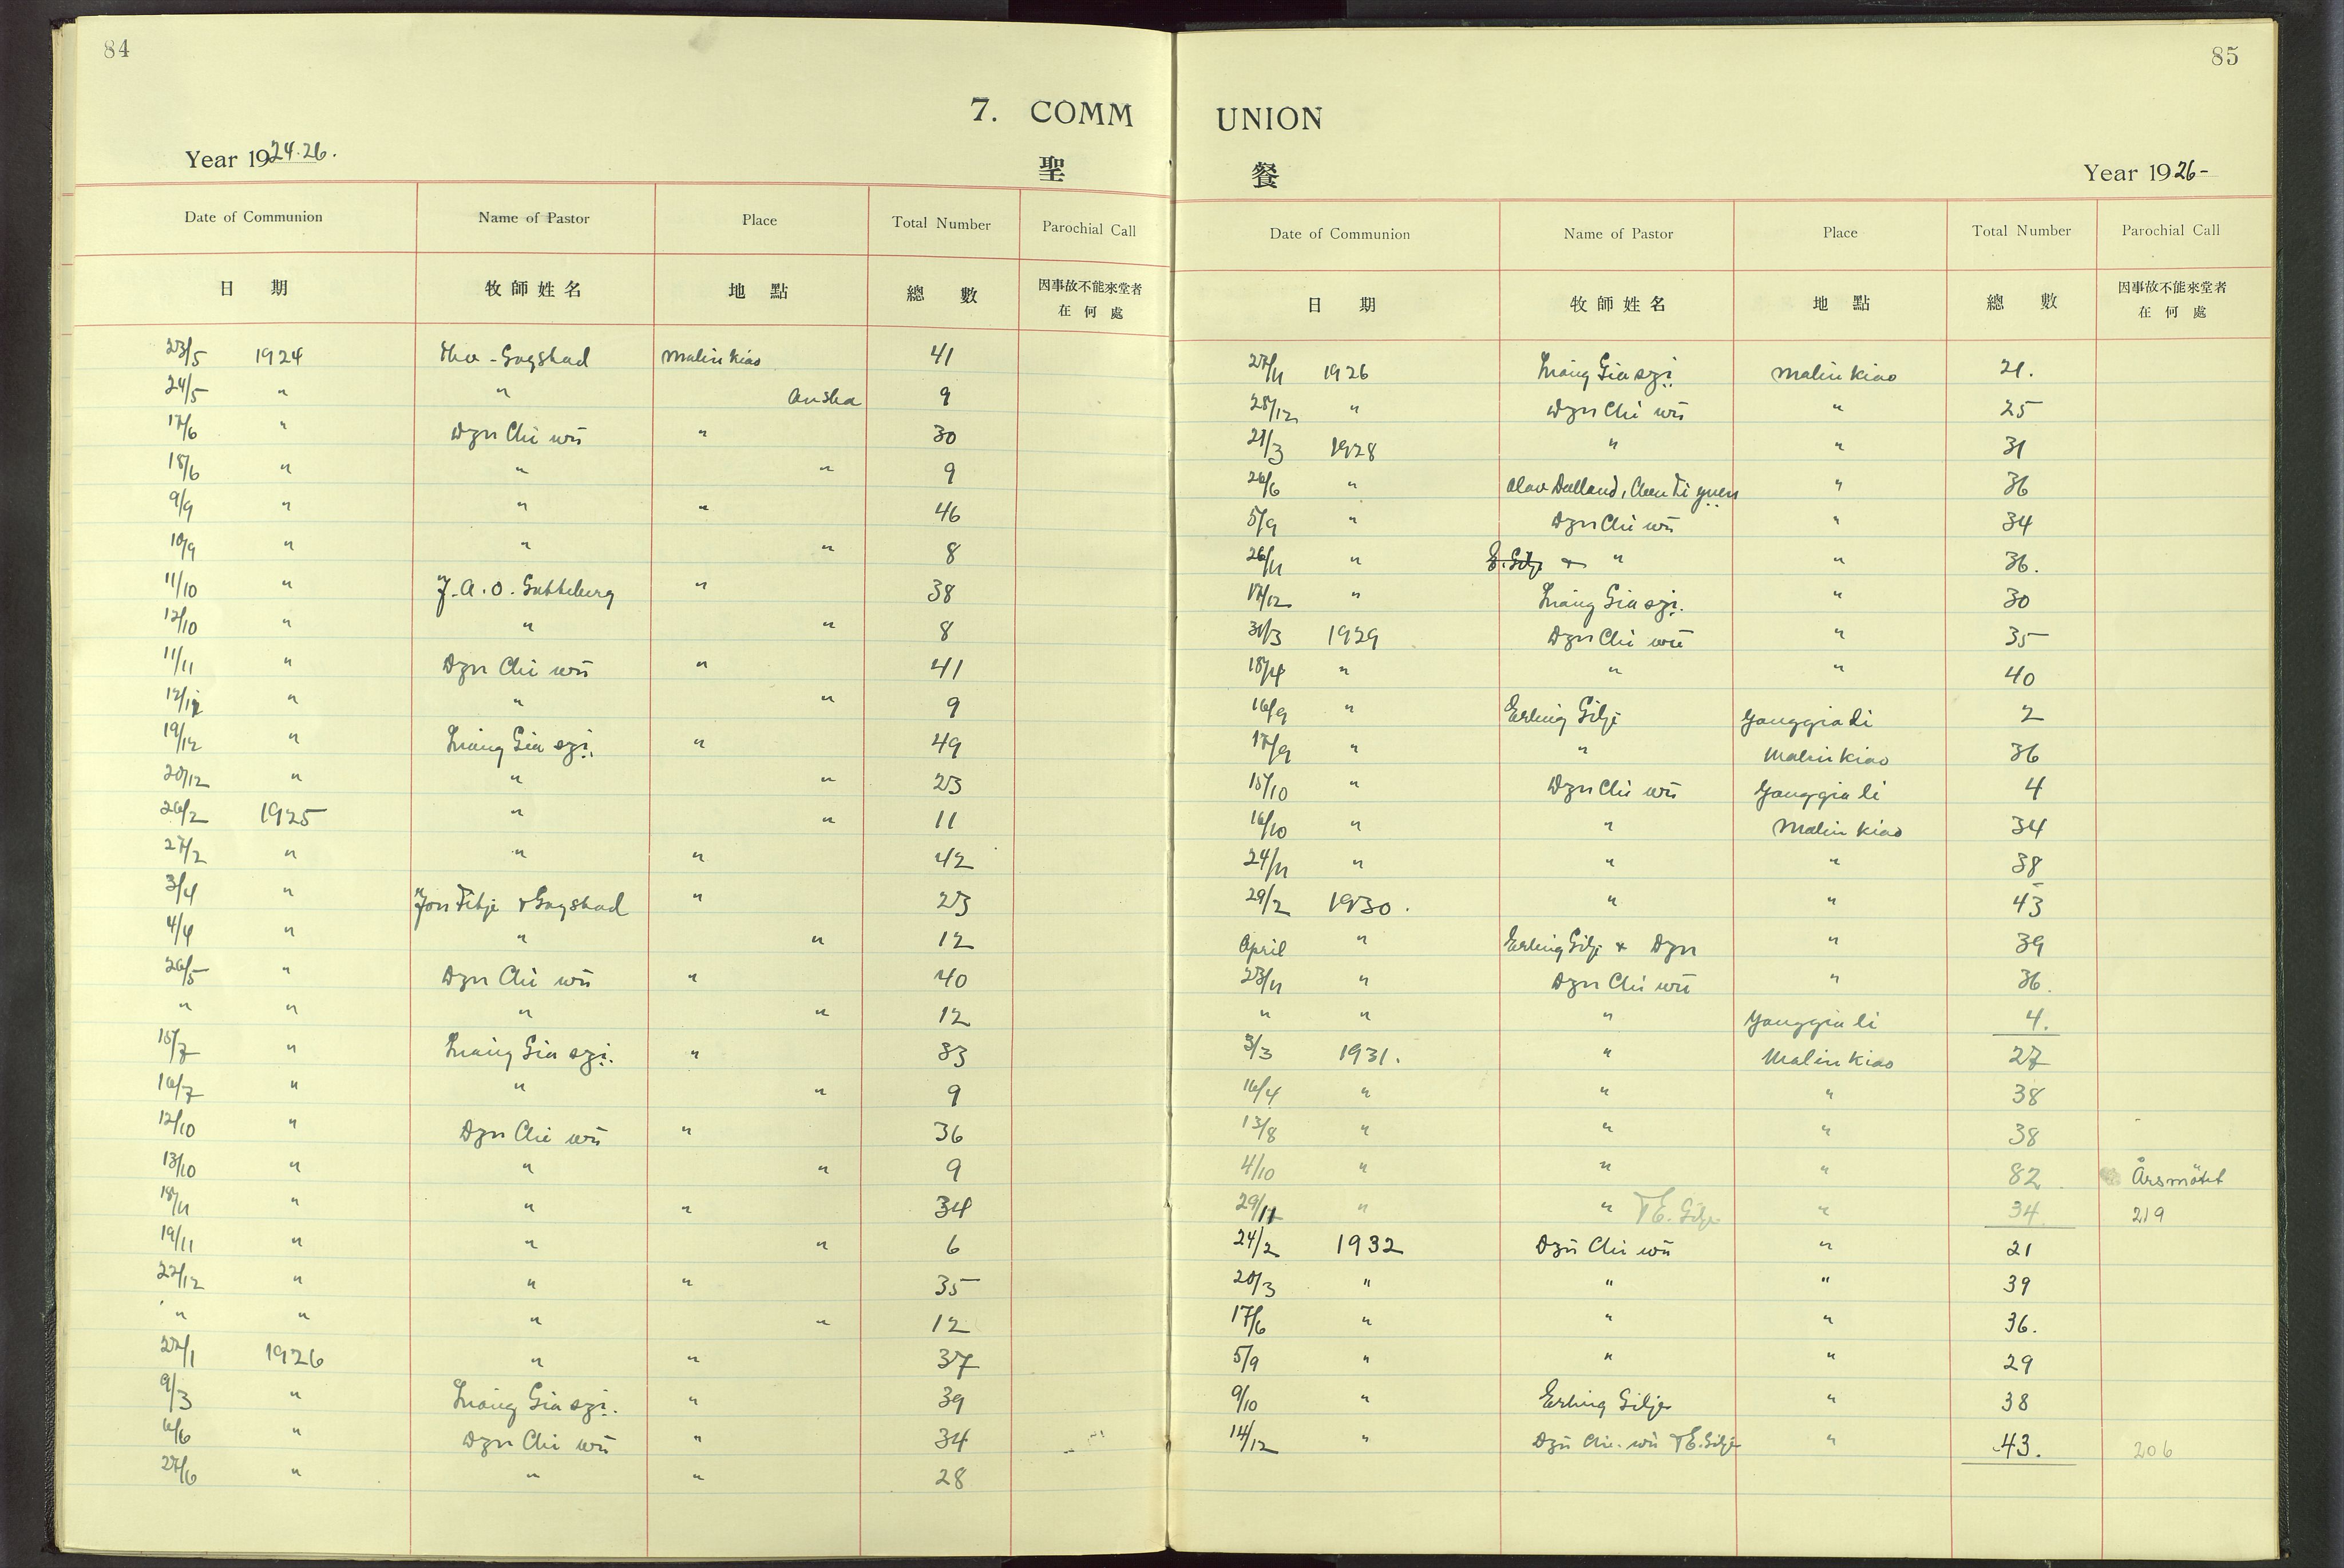 84
7. COMM
Year 1924-26.
聖
Date of Communion Name of Pastor Place Total Number Parochial Call
日 期 牧師姓名 地點 總數 因事故不能來堂者
在何處
23/5 1924 Gogstad Malinkiao 41
24/5 " " Ansha 9
17/6 " Dzn Chi wū " 30
18/6 " " " 9
9/9 " " " 46
10/9 " " " 8
11/10 " J. A. O. Gotteberg " 38
12/10 " " " 8
11/11 " Dzn Chi wū " 41
12/11 " " " 9
19/12 " Liäng Gia szi. " 49
20/12 " " " 23
26/2 1925 " " 11
27/2 " " " 42
3/4 " Jon Fitje & Gogstad " 23
4/4 " " " 12
26/5 " Dzn Chi wū " 40
" " " " 12
15/7 " Liäng Gia szi. " 33
16/7 " " " 9
12/10 " Dzn Chi wū " 36
13/10 " " " 9
18/11 " " " 34
19/11 " " " 6
22/12 " " " 35
" " " " 12
22/1 1926 " " 37
9/3 " Liäng Gia szi. " 39
6/6 " Dzn Chi wū " 34
27/6 " " " 28
85
UNION
餐
Year 1926-
Date of Communion Name of Pastor Place Total Number Parochial Call
日 期 牧師姓名 地點 總數 因事故不能來堂者
在何處
27/11 1926 Liäng Gia szi Malinkiao 21.
25/12 " Dzn Chi wū " 25
21/3 1928 " " 31
26/6 " Olav Dalland, Chen Ti yuen " 36
5/9 " Dzn Chi wū " 34
26/11 " E. Gilje + " " 36.
17/12 " Liäng Gia szi. " 30
31/3 1929 Dzn Chi wū " 35
18/4 " " " 40
16/9 " Erling Gilje Yanggia li 2
17/9 " " Malinkiao 36
15/10 " Dzn Chi wū Yanggia li 4
16/10 " " Malinkiao 34
24/11 " " " 38
29/2 1930. " " 43
April " Erling Gilje + Dzn " 39
23/11 " Dzn Chi wū " 36.
" " " Yanggia li 4.
3/3 1931. " Malinkiao 27
16/4 " " " 38
13/8 " " " 38
4/10 " " " 82 Årsmötet
29/11 " " + E. Gilje " 34 219
24/2 1932 Dzū Chi wū " 21
20/3 " " " 39
17/6 " " " 36.
5/9 " " " 29
9/10 " Erling Gilje " 38
14/12 " Dzū Chi wū + E. Gilje " 43. 206